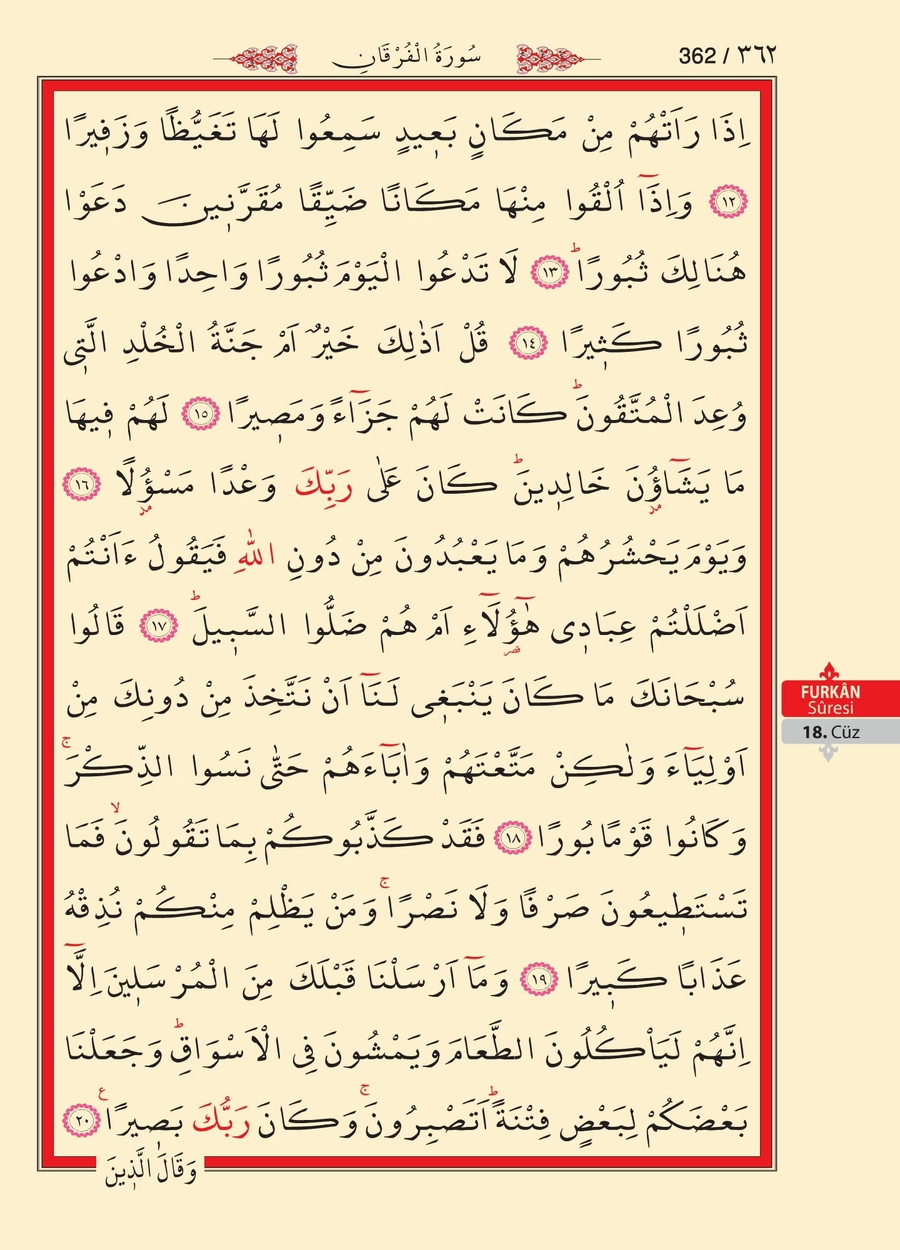 سُورَةُ الْفُرْقَانِ
٣٦٢ / 362
اِذَا رَاَتْهُمْ مِنْ مَكَانٍ بَع۪يدٍ سَمِعُوا لَهَا تَغَيُّظًا وَزَف۪يرًا
﴿١٢﴾ وَاِذَٓا اُلْقُوا مِنْهَا مَكَانًا ضَيِّقًا مُقَرَّن۪ينَ دَعَوْا
هُنَالِكَ ثُبُورًاۜ ﴿١٣﴾ لَا تَدْعُوا الْيَوْمَ ثُبُورًا وَاحِدًا وَادْعُوا
ثُبُورًا كَث۪يرًا ﴿١٤﴾ قُلْ اَذٰلِكَ خَيْرٌ اَمْ جَنَّةُ الْخُلْدِ الَّت۪ي
وُعِدَ الْمُتَّقُونَۜ كَانَتْ لَهُمْ جَزَٓاءً وَمَص۪يرًا ﴿١٥﴾ لَهُمْ ف۪يهَا
مَا يَشَٓاؤُ۫نَ خَالِد۪ينَۜ كَانَ عَلٰى رَبِّكَ وَعْدًا مَسْؤُ۫لًا ﴿١٦﴾
وَيَوْمَ يَحْشُرُهُمْ وَمَا يَعْبُدُونَ مِنْ دُونِ اللّٰهِ فَيَقُولُ ءَاَنْتُمْ
اَضْلَلْتُمْ عِبَاد۪ي هٰٓؤُ۬لَٓاءِ اَمْ هُمْ ضَلُّوا السَّب۪يلَۜ ﴿١٧﴾ قَالُوا
سُبْحَانَكَ مَا كَانَ يَنْبَغ۪ي لَنَٓا اَنْ نَتَّخِذَ مِنْ دُونِكَ مِنْ
اَوْلِيَٓاءَ وَلٰكِنْ مَتَّعْتَهُمْ وَاٰبَٓاءَهُمْ حَتّٰى نَسُوا الذِّكْرَۚ
وَكَانُوا قَوْمًا بُورًا ﴿١٨﴾ فَقَدْ كَذَّبُوكُمْ بِمَا تَقُولُونَۙ فَمَا
تَسْتَط۪يعُونَ صَرْفًا وَلَا نَصْرًاۚ وَمَنْ يَظْلِمْ مِنْكُمْ نُذِقْهُ
عَذَابًا كَب۪يرًا ﴿١٩﴾ وَمَٓا اَرْسَلْنَا قَبْلَكَ مِنَ الْمُرْسَل۪ينَ اِلَّٓا
اِنَّهُمْ لَيَأْكُلُونَ الطَّعَامَ وَيَمْشُونَ فِي الْاَسْوَاقِۜ وَجَعَلْنَا
بَعْضَكُمْ لِبَعْضٍ فِتْنَةًۜ اَتَصْبِرُونَۚ وَكَانَ رَبُّكَ بَص۪يرًاۚ ﴿٢٠﴾
وَقَالَ الَّذ۪ينَ
FURKÂN
Sûresi
18. Cüz